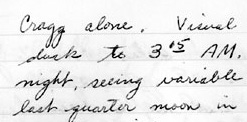 Cragg alone. Visual
dusk to 3 05 A.M.
night, seeing variable
last quarter moon in